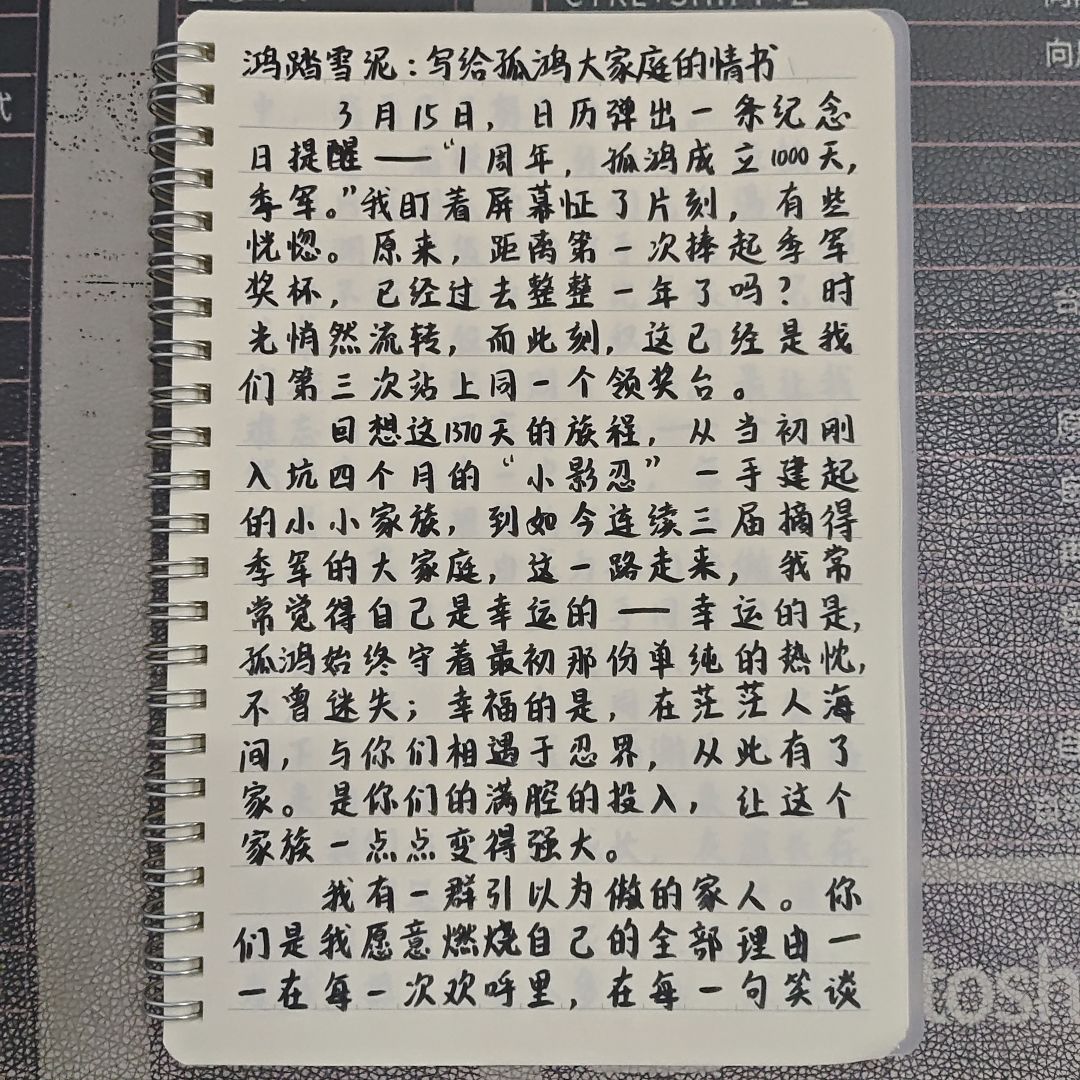 鸿踏雪泥：写给孤鸿大家庭的情书
3月15日，日历弹出一条纪念
日提醒——“1周年，孤鸿成立1000天，
季军。”我盯着屏幕怔了片刻，有些
恍惚。原来，距离第一次捧起季军
奖杯，已经过去整整一年了吗？时
光悄然流转，而此刻，这已经是我
们第三次站上同一个领奖台。
回想这1370天的旅程，从当初刚
入坑四个月的“小影忍”，一手建起
的小小家族，到如今连续三届摘得
季军的大家庭，这一路走来，我常
常觉得自己是幸运的——幸运的是，
孤鸿始终守着最初那份单纯的热忱，
不曾迷失；幸福的是，在茫茫人海
间，与你们相遇于忍界，从此有了
家。是你们的满腔的投入，让这个
家族一点点变得强大。
我有一群引以为傲的家人。你
们是我愿意燃烧自己的全部理由—
—在每一次欢呼里，在每一句笑谈
tosh